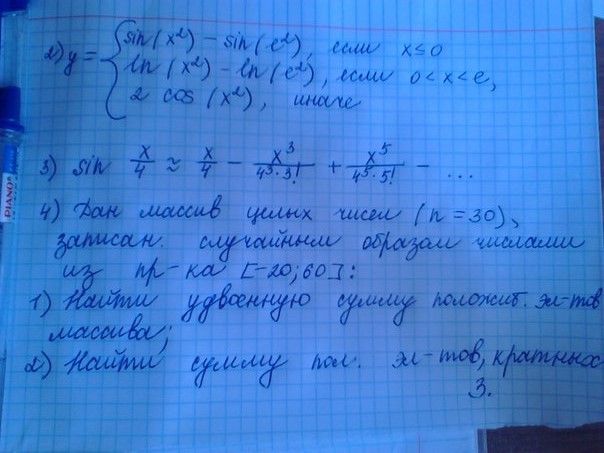 2) y = { sin(x²) – sin(e²), если x ≤ 0
ln(x²) – ln(e²), если 0 < x < e,
2 cos(x²), иначе
3) sin x/4 ≈ x/4 – x³/(4³·3!) + x⁵/(4⁵·5!) – ...
4) Дан массив целых чисел (n = 30),
записан. случайным образом числами
из пр-ка [-20; 60]:
1) Найти удвоенную сумму положит. эл-тов
массива;
2) Найти сумму пол. эл-тов, кратных
3.
PIANO